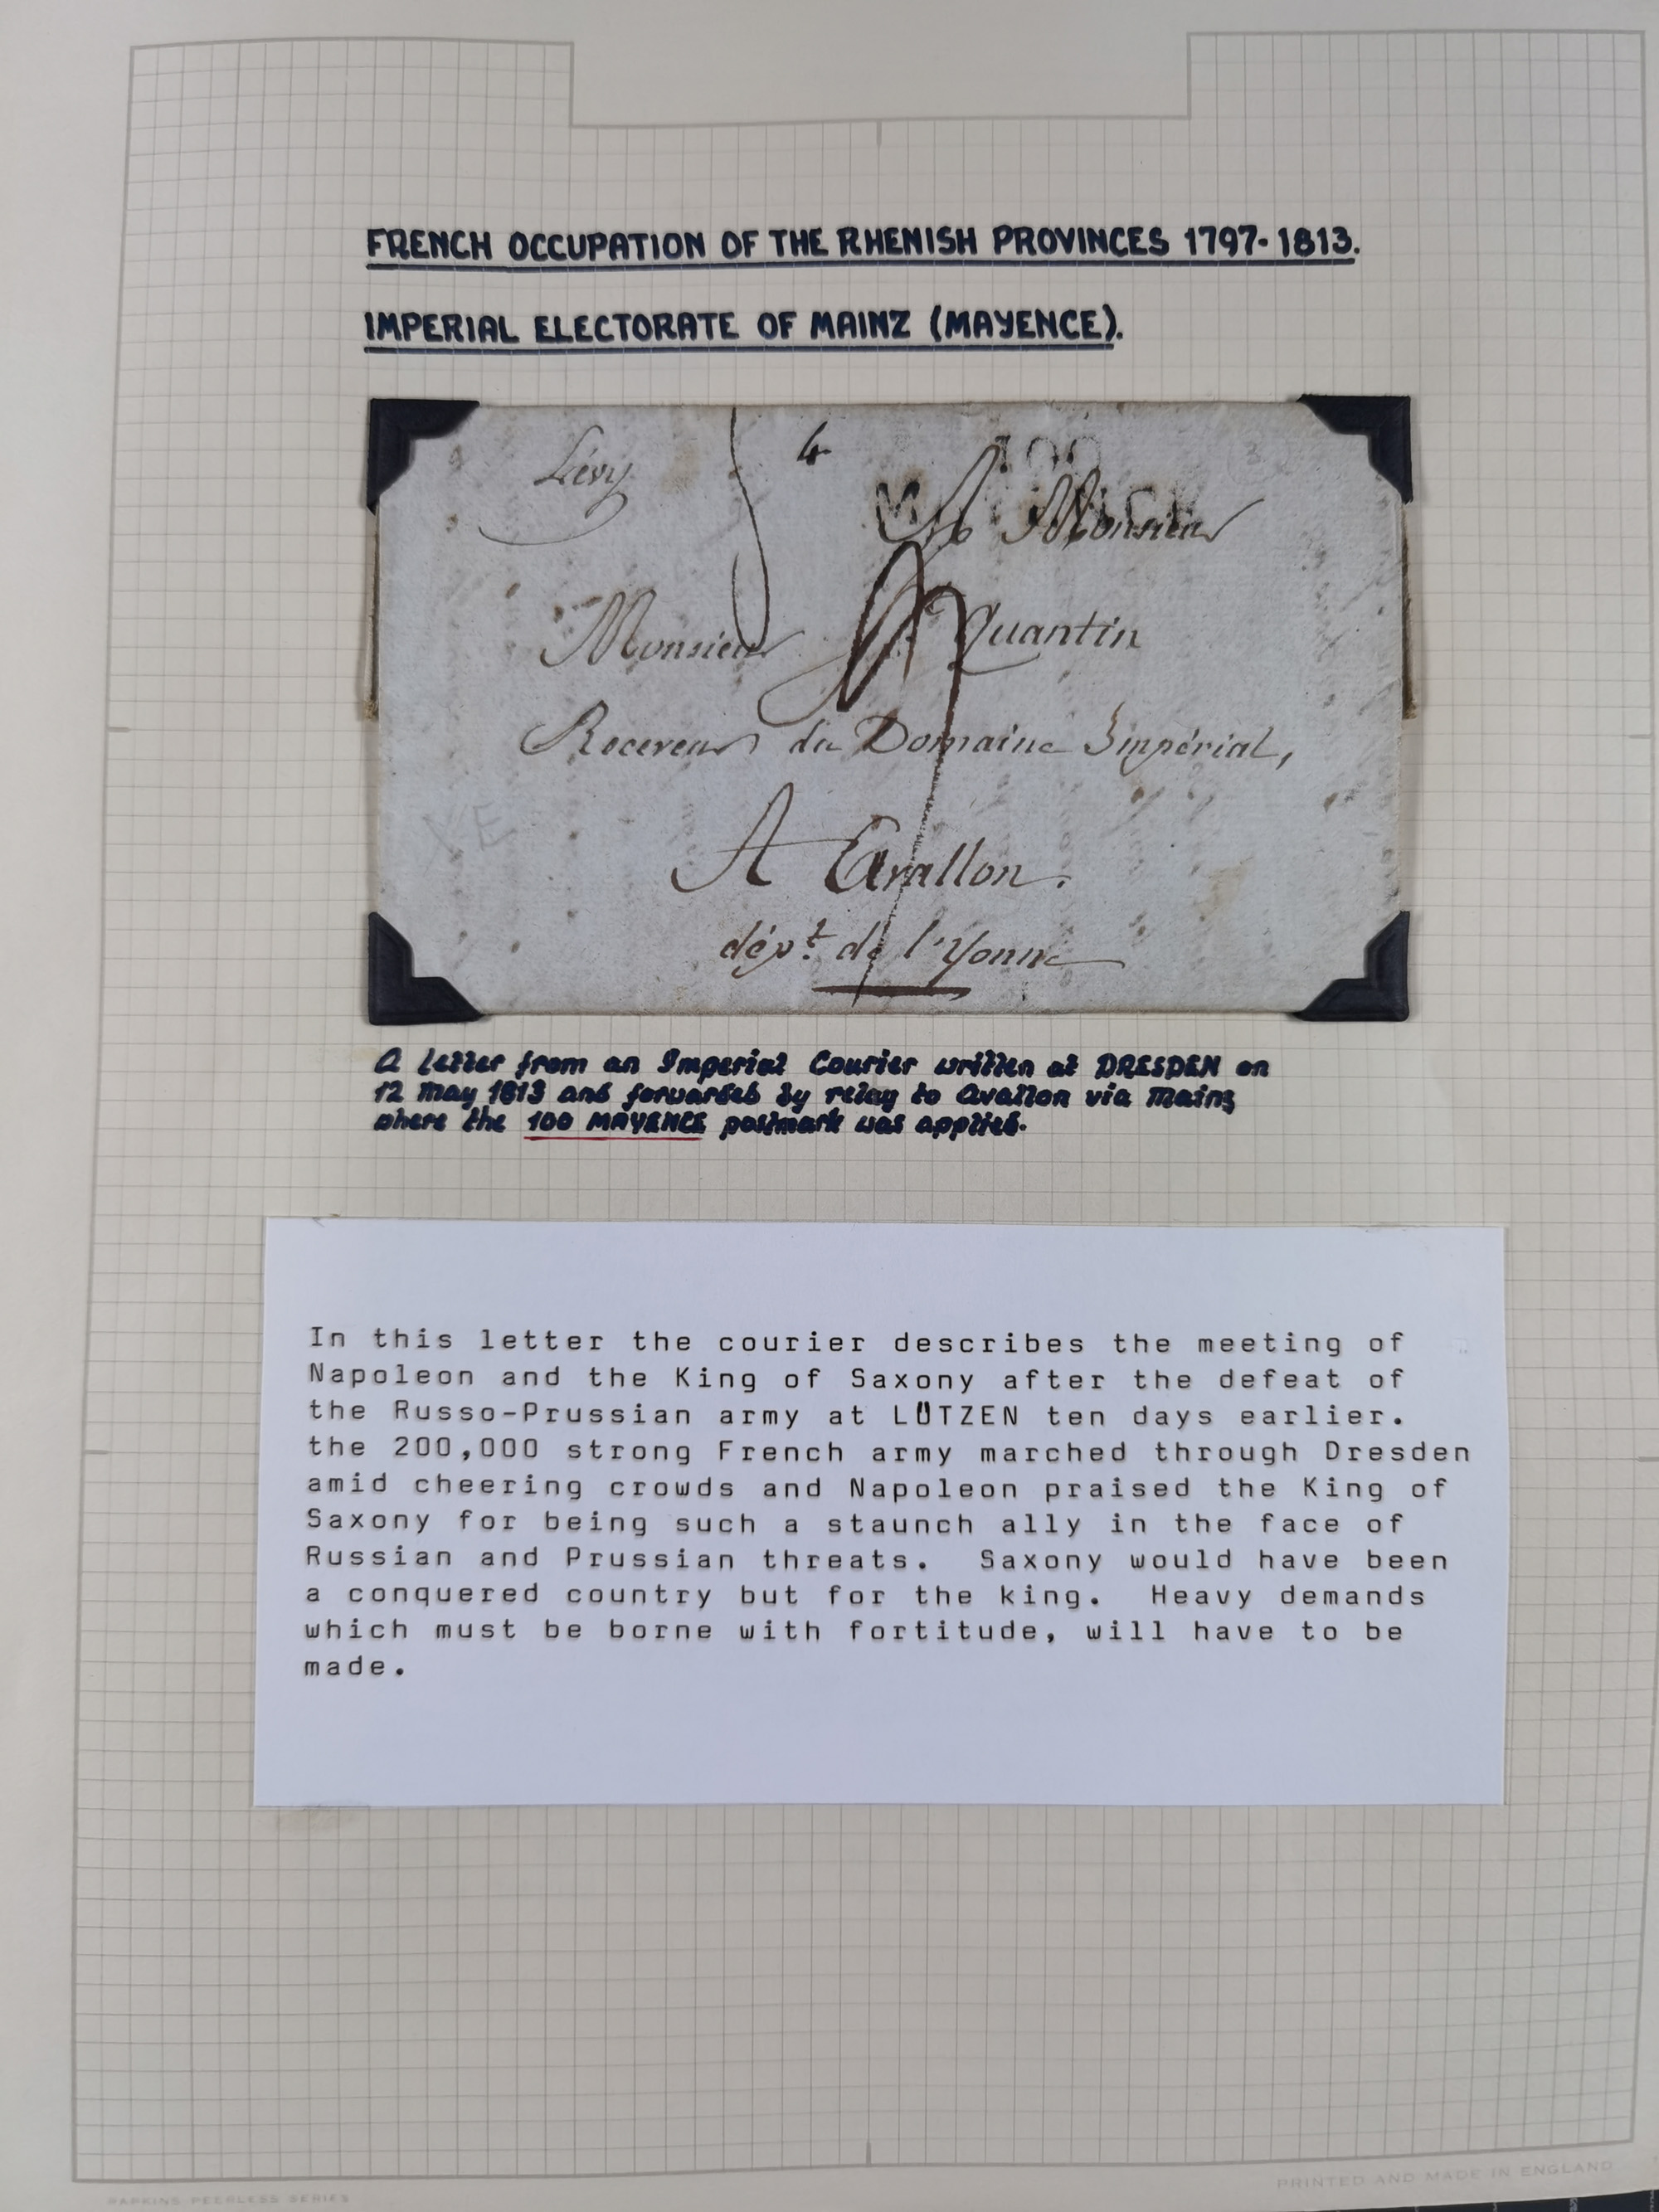 FRENCH OCCUPATION OF THE RHENISH PROVINCES 1797-1813.
IMPERIAL ELECTORATE OF MAINZ (MAYENCE).
Lévy
4
100
A Monsieur
Monsieur Quantin
Receveur du Domaine Impérial,
A Avallon.
dépt. de l'Yonne
A letter from an Imperial Courier written at DRESDEN on
12 May 1813 and forwarded by relay to Avallon via Mainz
where the 100 MAYENCE postmark was applied.
In this letter the courier describes the meeting of
Napoleon and the King of Saxony after the defeat of
the Russo-Prussian army at LÜTZEN ten days earlier.
the 200,000 strong French army marched through Dresden
amid cheering crowds and Napoleon praised the King of
Saxony for being such a staunch ally in the face of
Russian and Prussian threats. Saxony would have been
a conquered country but for the king. Heavy demands
which must be borne with fortitude, will have to be
made.
RAPKINS PEERLESS SERIES
PRINTED AND MADE IN ENGLAND